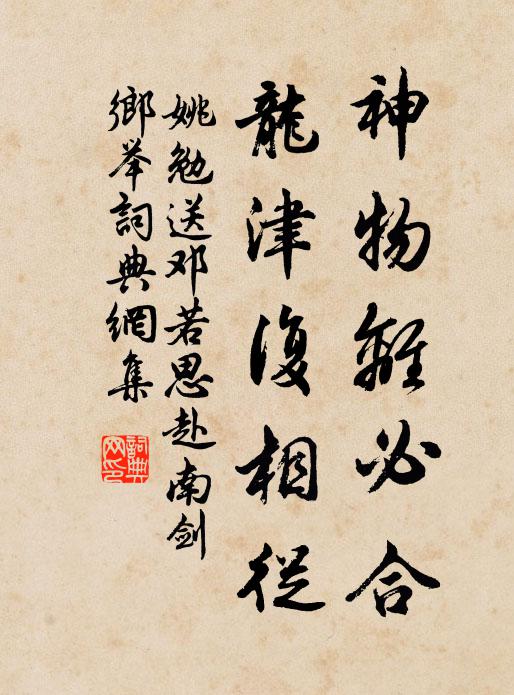 神物離必合
龍津復相從
姚勉送邓若思赴南剑
鄉举詞典網集
詞典
网印